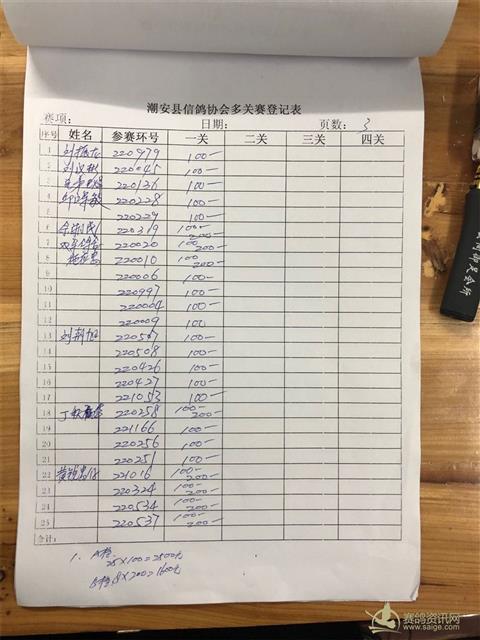 潮安县信鸽协会多关赛登记表
赛项： 日期： 页数：3
序号 姓名 参赛环号 一关 二关 三关 四关
1 220979 100-
2 220045 100-
3 220136 100-
4 220228 100-
5 220229 100-
6 220319 100- 200-
7 220020 100 200-
8 220010 100- 200-
9 220006 100-
10 220997 100-
11 220004 100-
12 220009 100
13 220567 100-
14 220508 100-
15 220426 100-
16 220427 100-
17 221053 100-
18 220258 100- 200-
19 221166 100-
20 220256 100-
21 220251 100-
22 221016 100- 200-
23 220324 100- 200-
24 220534 100- 200-
25 220537 100- 200-
合计：
1. A档
25×100=2500元
B档 8×200=1600元
赛鸽资讯网
www.saige.com